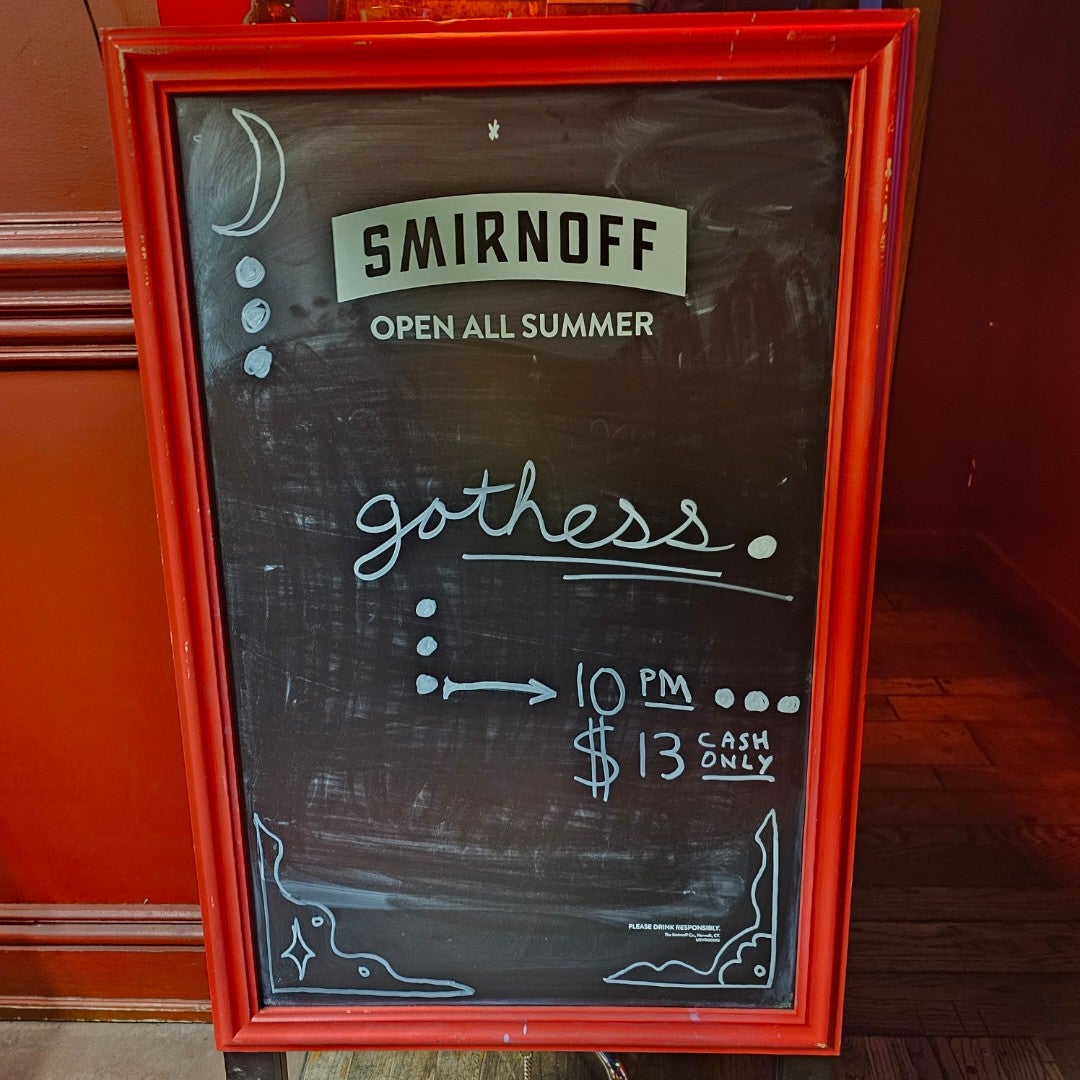 SMIRNOFF
OPEN ALL SUMMER
gothess.
10 PM
$13 CASH ONLY
PLEASE DRINK RESPONSIBLY.
The Smirnoff Co., Norwalk, CT.